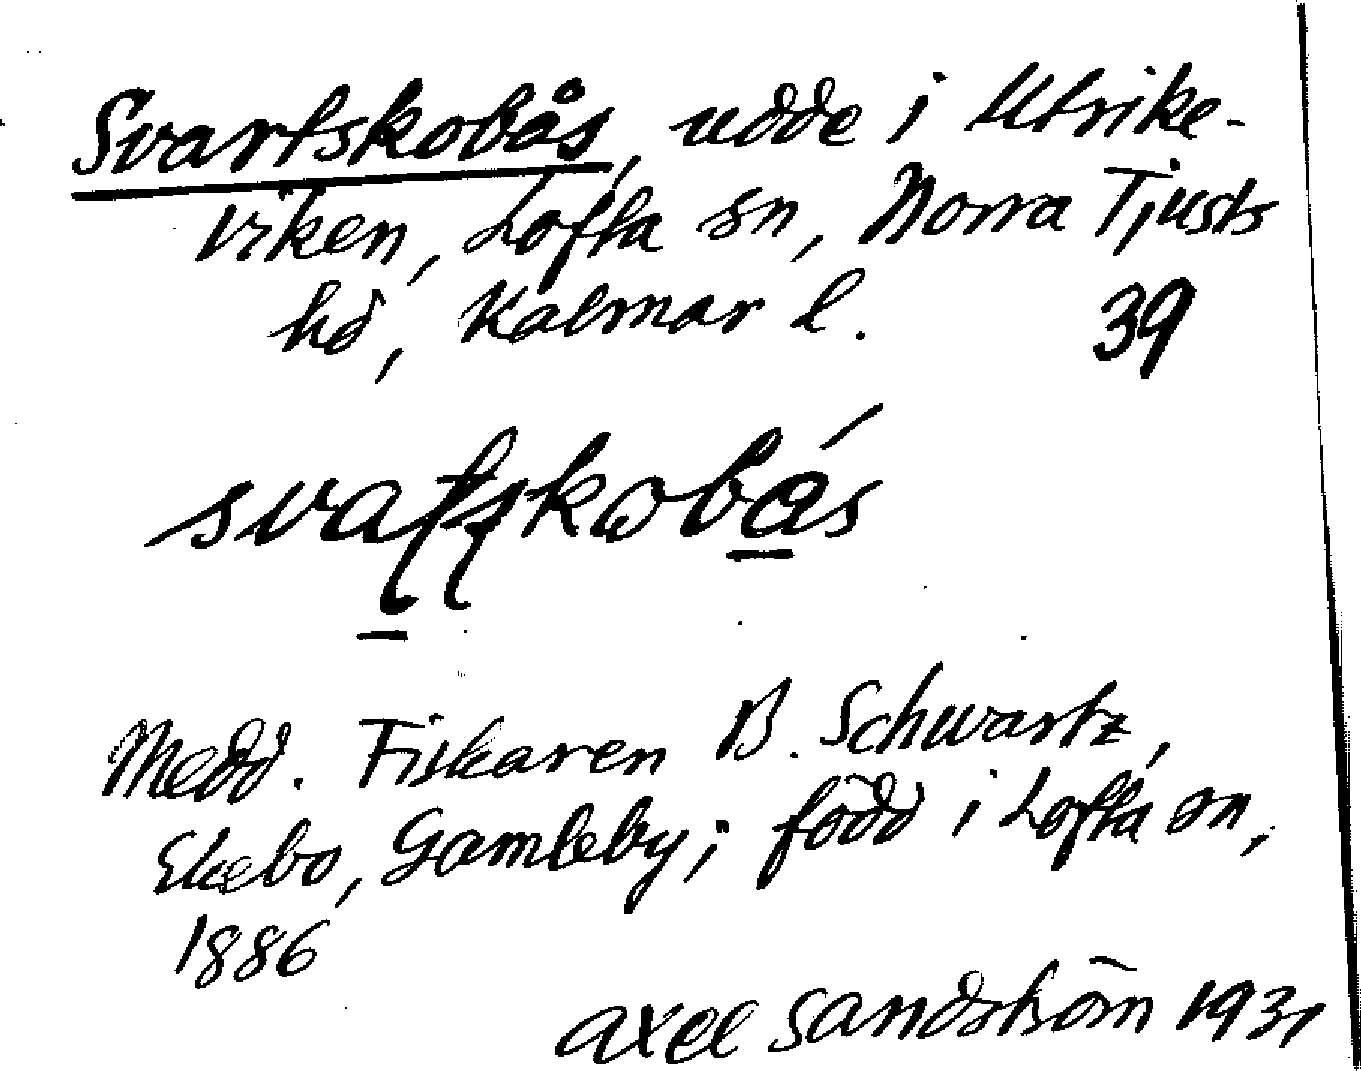 Svartskobås, udde i Ulrike-
viken, Lofta sn, Norra Tjusts
hd, Kalmar l. 39
Medd. Fiskaren B. Schwartz,
Ekebo, Gamleby; född i Lofta sn,
1886
Axel Sandström 1931